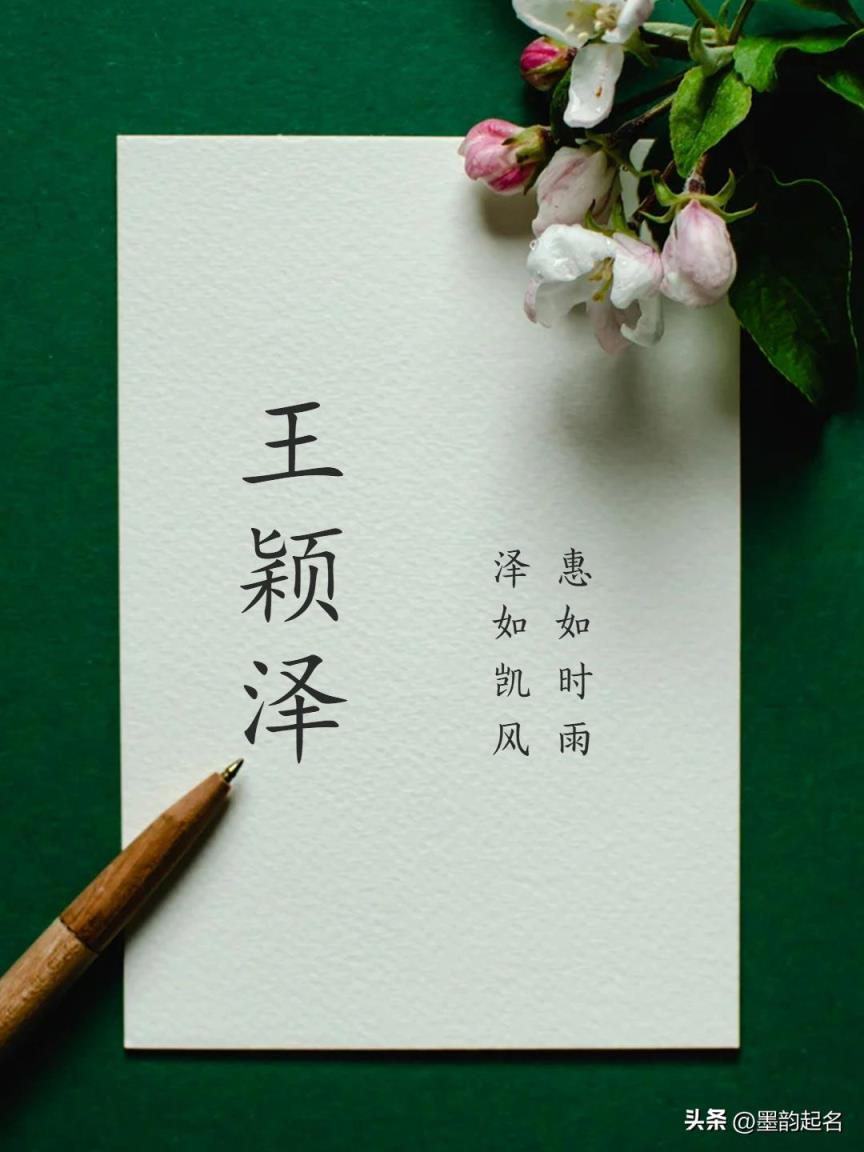 王颖泽
惠如时雨
泽如凯风
头条 @墨韵起名